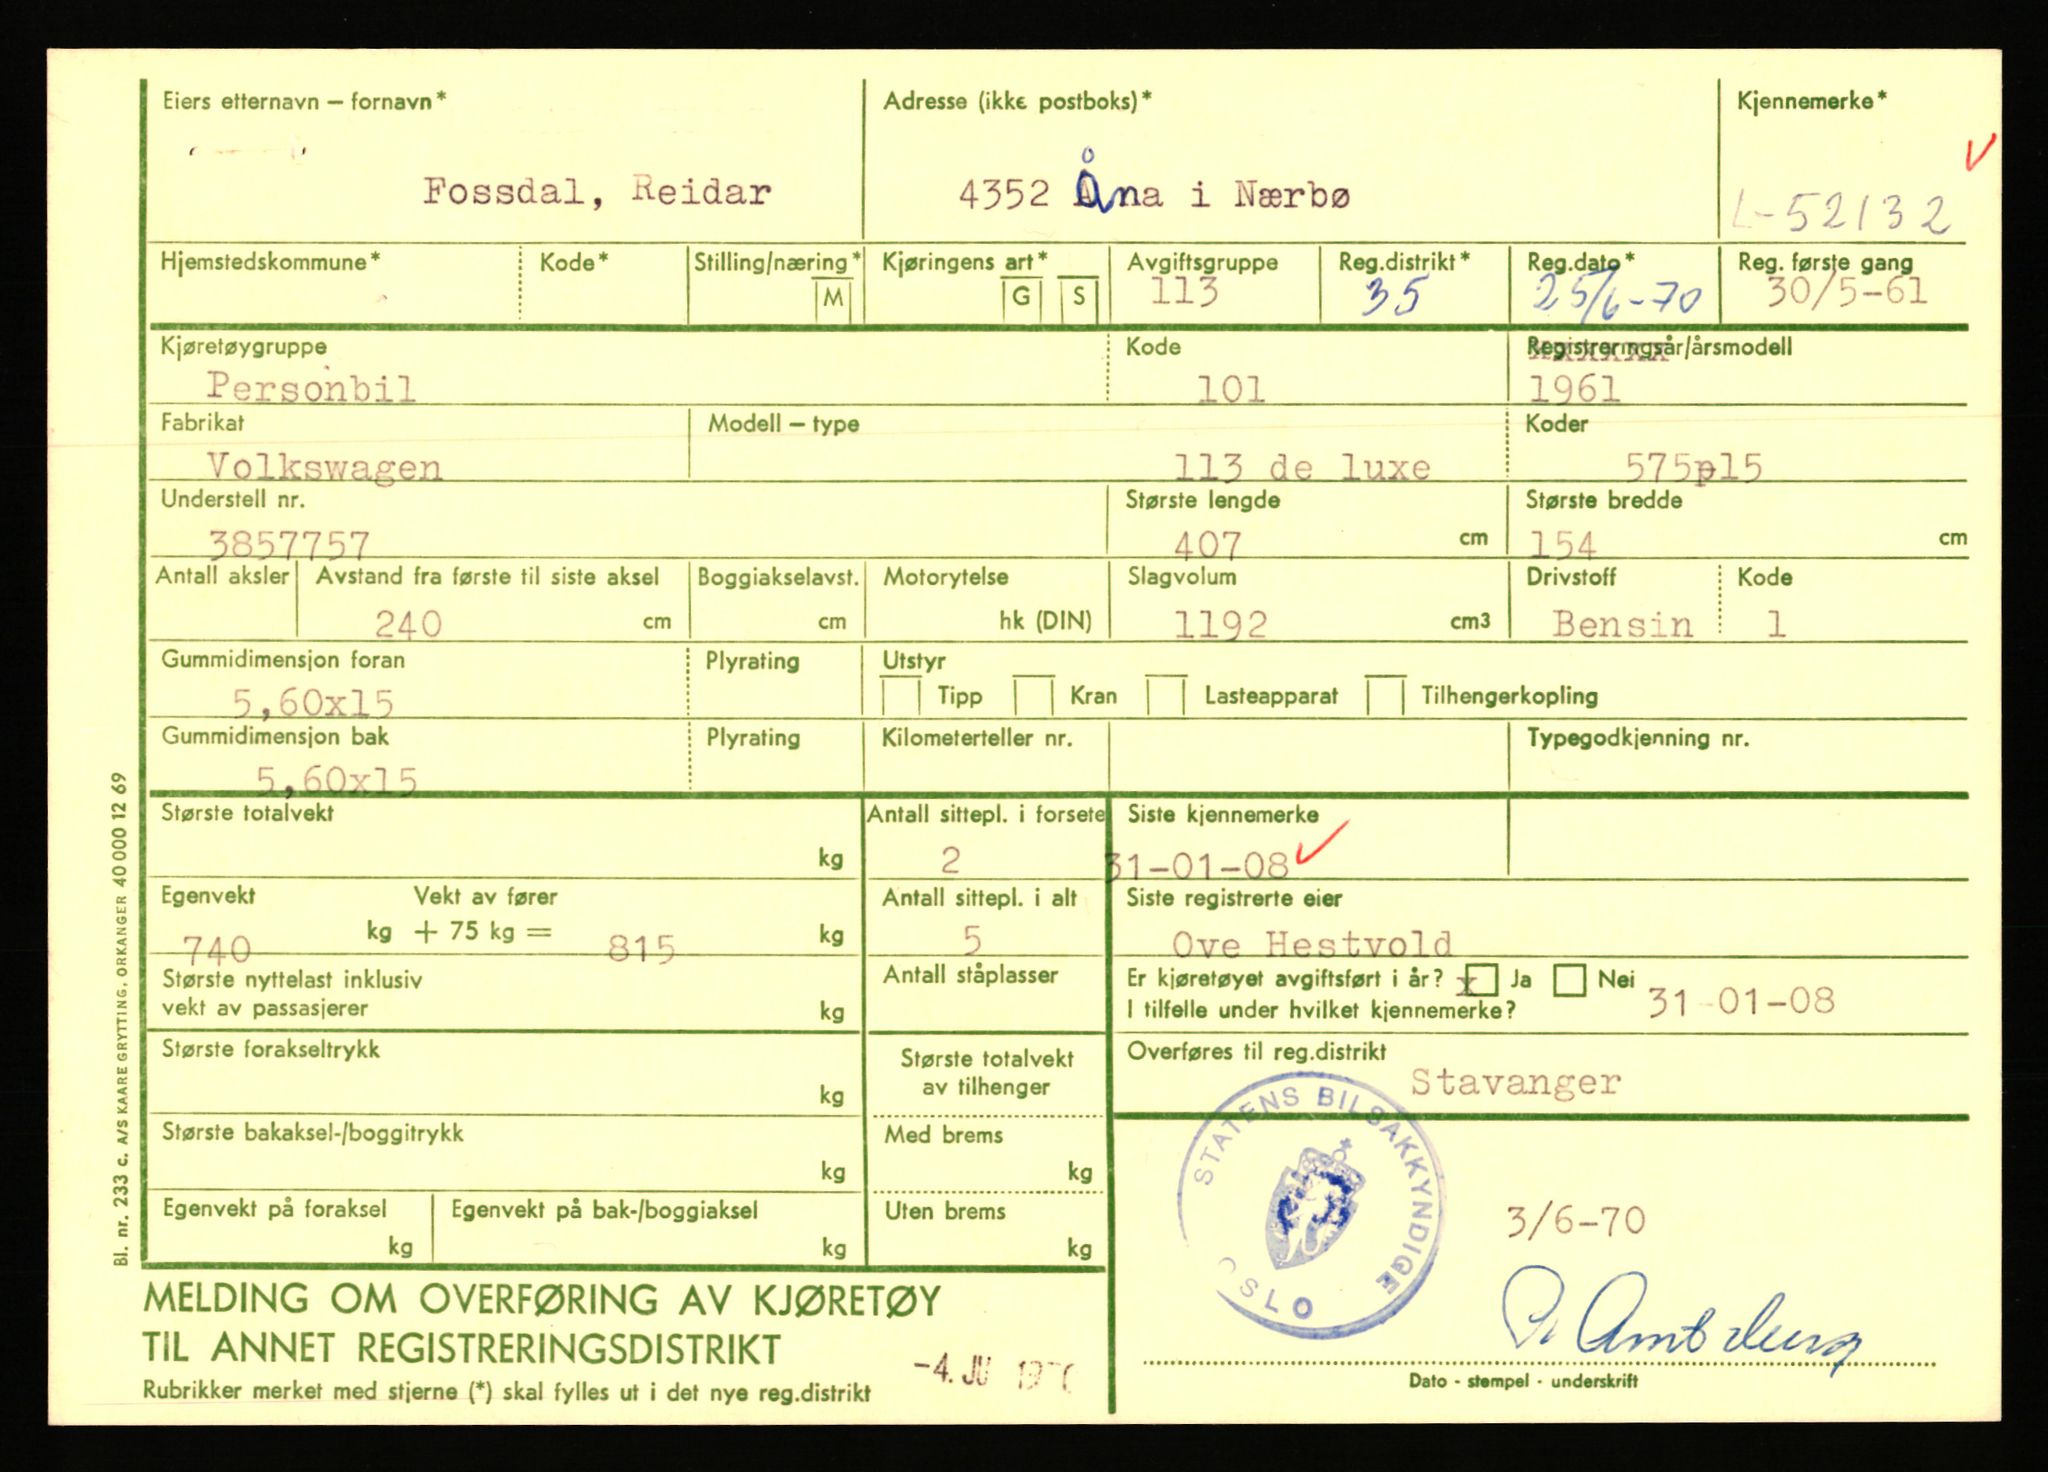 Eiers etternavn – fornavn*
Fossdal, Reidar
Adresse (ikke postboks)*
4352 Åna i Nærbø
Kjennemerke*
L-52132
Hjemstedskommune*
Kode*
Stilling/næring*
M
Kjøringens art*
G S
Avgiftsgruppe
113
Reg.distrikt*
35
Reg.dato*
25/6-70
Reg. første gang
30/5-61
Kjøretøygruppe
Personbil
Kode
101
Registreringsår/årsmodell
1961
Fabrikat
Volkswagen
Modell – type
113 de luxe
Koder
575p15
Understell nr.
3857757
Største lengde
407 cm
Største bredde
154 cm
Antall aksler
Avstand fra første til siste aksel
240 cm
Boggiakselavst.
cm
Motorytelse
hk (DIN)
Slagvolum
1192 cm3
Drivstoff
Bensin
Kode
1
Gummidimensjon foran
5,60x15
Plyrating
Utstyr
Tipp Kran Lasteapparat Tilhengerkopling
Gummidimensjon bak
5,60x15
Plyrating
Kilometerteller nr.
Typegodkjenning nr.
Største totalvekt
kg
Antall sittepl. i forsete
2
Siste kjennemerke
31-01-08
Egenvekt Vekt av fører
740 kg + 75 kg = 815 kg
Antall sittepl. i alt
5
Siste registrerte eier
Ove Hestvold
Største nyttelast inklusiv
vekt av passasjerer kg
Antall ståplasser
Er kjøretøyet avgiftsført i år? x Ja Nei
I tilfelle under hvilket kjennemerke? 31-01-08
Største forakseltrykk
kg
Største totalvekt
av tilhenger
Overføres til reg.distrikt
Stavanger
Største bakaksel-/boggitrykk
kg
Med brems
kg
Egenvekt på foraksel
kg
Egenvekt på bak-/boggiaksel
kg
Uten brems
kg
STATENS BILSAKKYNDIGE
OSLO
3/6-70
MELDING OM OVERFØRING AV KJØRETØY
TIL ANNET REGISTRERINGSDISTRIKT
Rubrikker merket med stjerne (*) skal fylles ut i det nye reg.distrikt
-4. JU 197
Dato - stempel - underskrift
Bl. nr. 233 c. A/S KAARE GRYTTING, ORKANGER 40 000 12 69